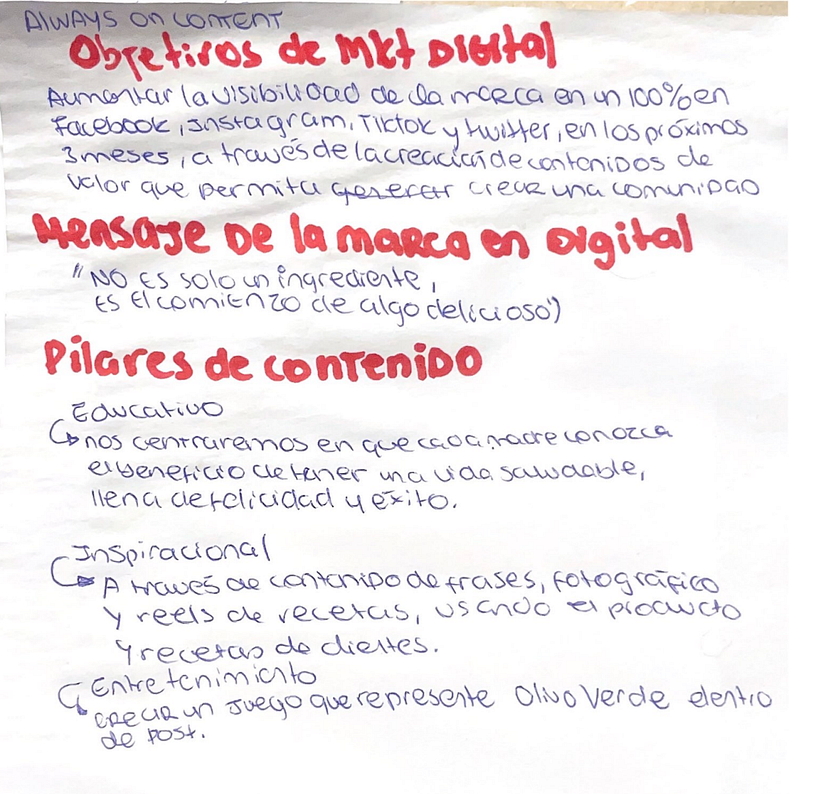 ALWAYS On CONTENT
Objetivos de Mkt Digital
Aumentar la visibilidad de la marca en un 100% en
Facebook, Instagram, Tiktok y twitter, en los próximos
3 meses, a través de la creación de contenidos de
valor que permita generar crear una comunidad
Mensaje de la marca en Digital
"No es solo un ingrediente,
es el comienzo de algo delicioso"
Pilares de contenido
Educativo
nos centraremos en que cada madre conozca
el beneficio de tener una vida saludable,
llena de felicidad y éxito.
Inspiracional
A través de contenido de frases, fotográfico
y reels de recetas, usando el producto
y recetas de clientes.
Entretenimiento
crear un juego que represente Olivo Verde dentro
de post.